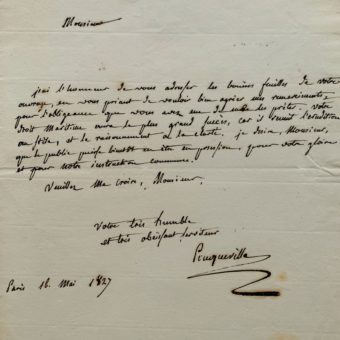 Monsieur
j'ai l'honneur de vous adresser les bonnes feuilles de votre
ouvrage, en vous priant de vouloir bien agréer mes remerciments,
pour l'obligeance que vous avez eue de me les prêter. votre
droit Maritime aura le plus grand succès, car il réunit l'érudition
au style, et le raisonnement à la clarté. je désire, Monsieur,
que le public puisse bientôt en être en possession, pour votre gloire
et pour notre instruction commune.
Veuillez me croire, Monsieur,
Votre très humble
et très obéissant serviteur
Pouqueville
Paris 16. Mai 1827